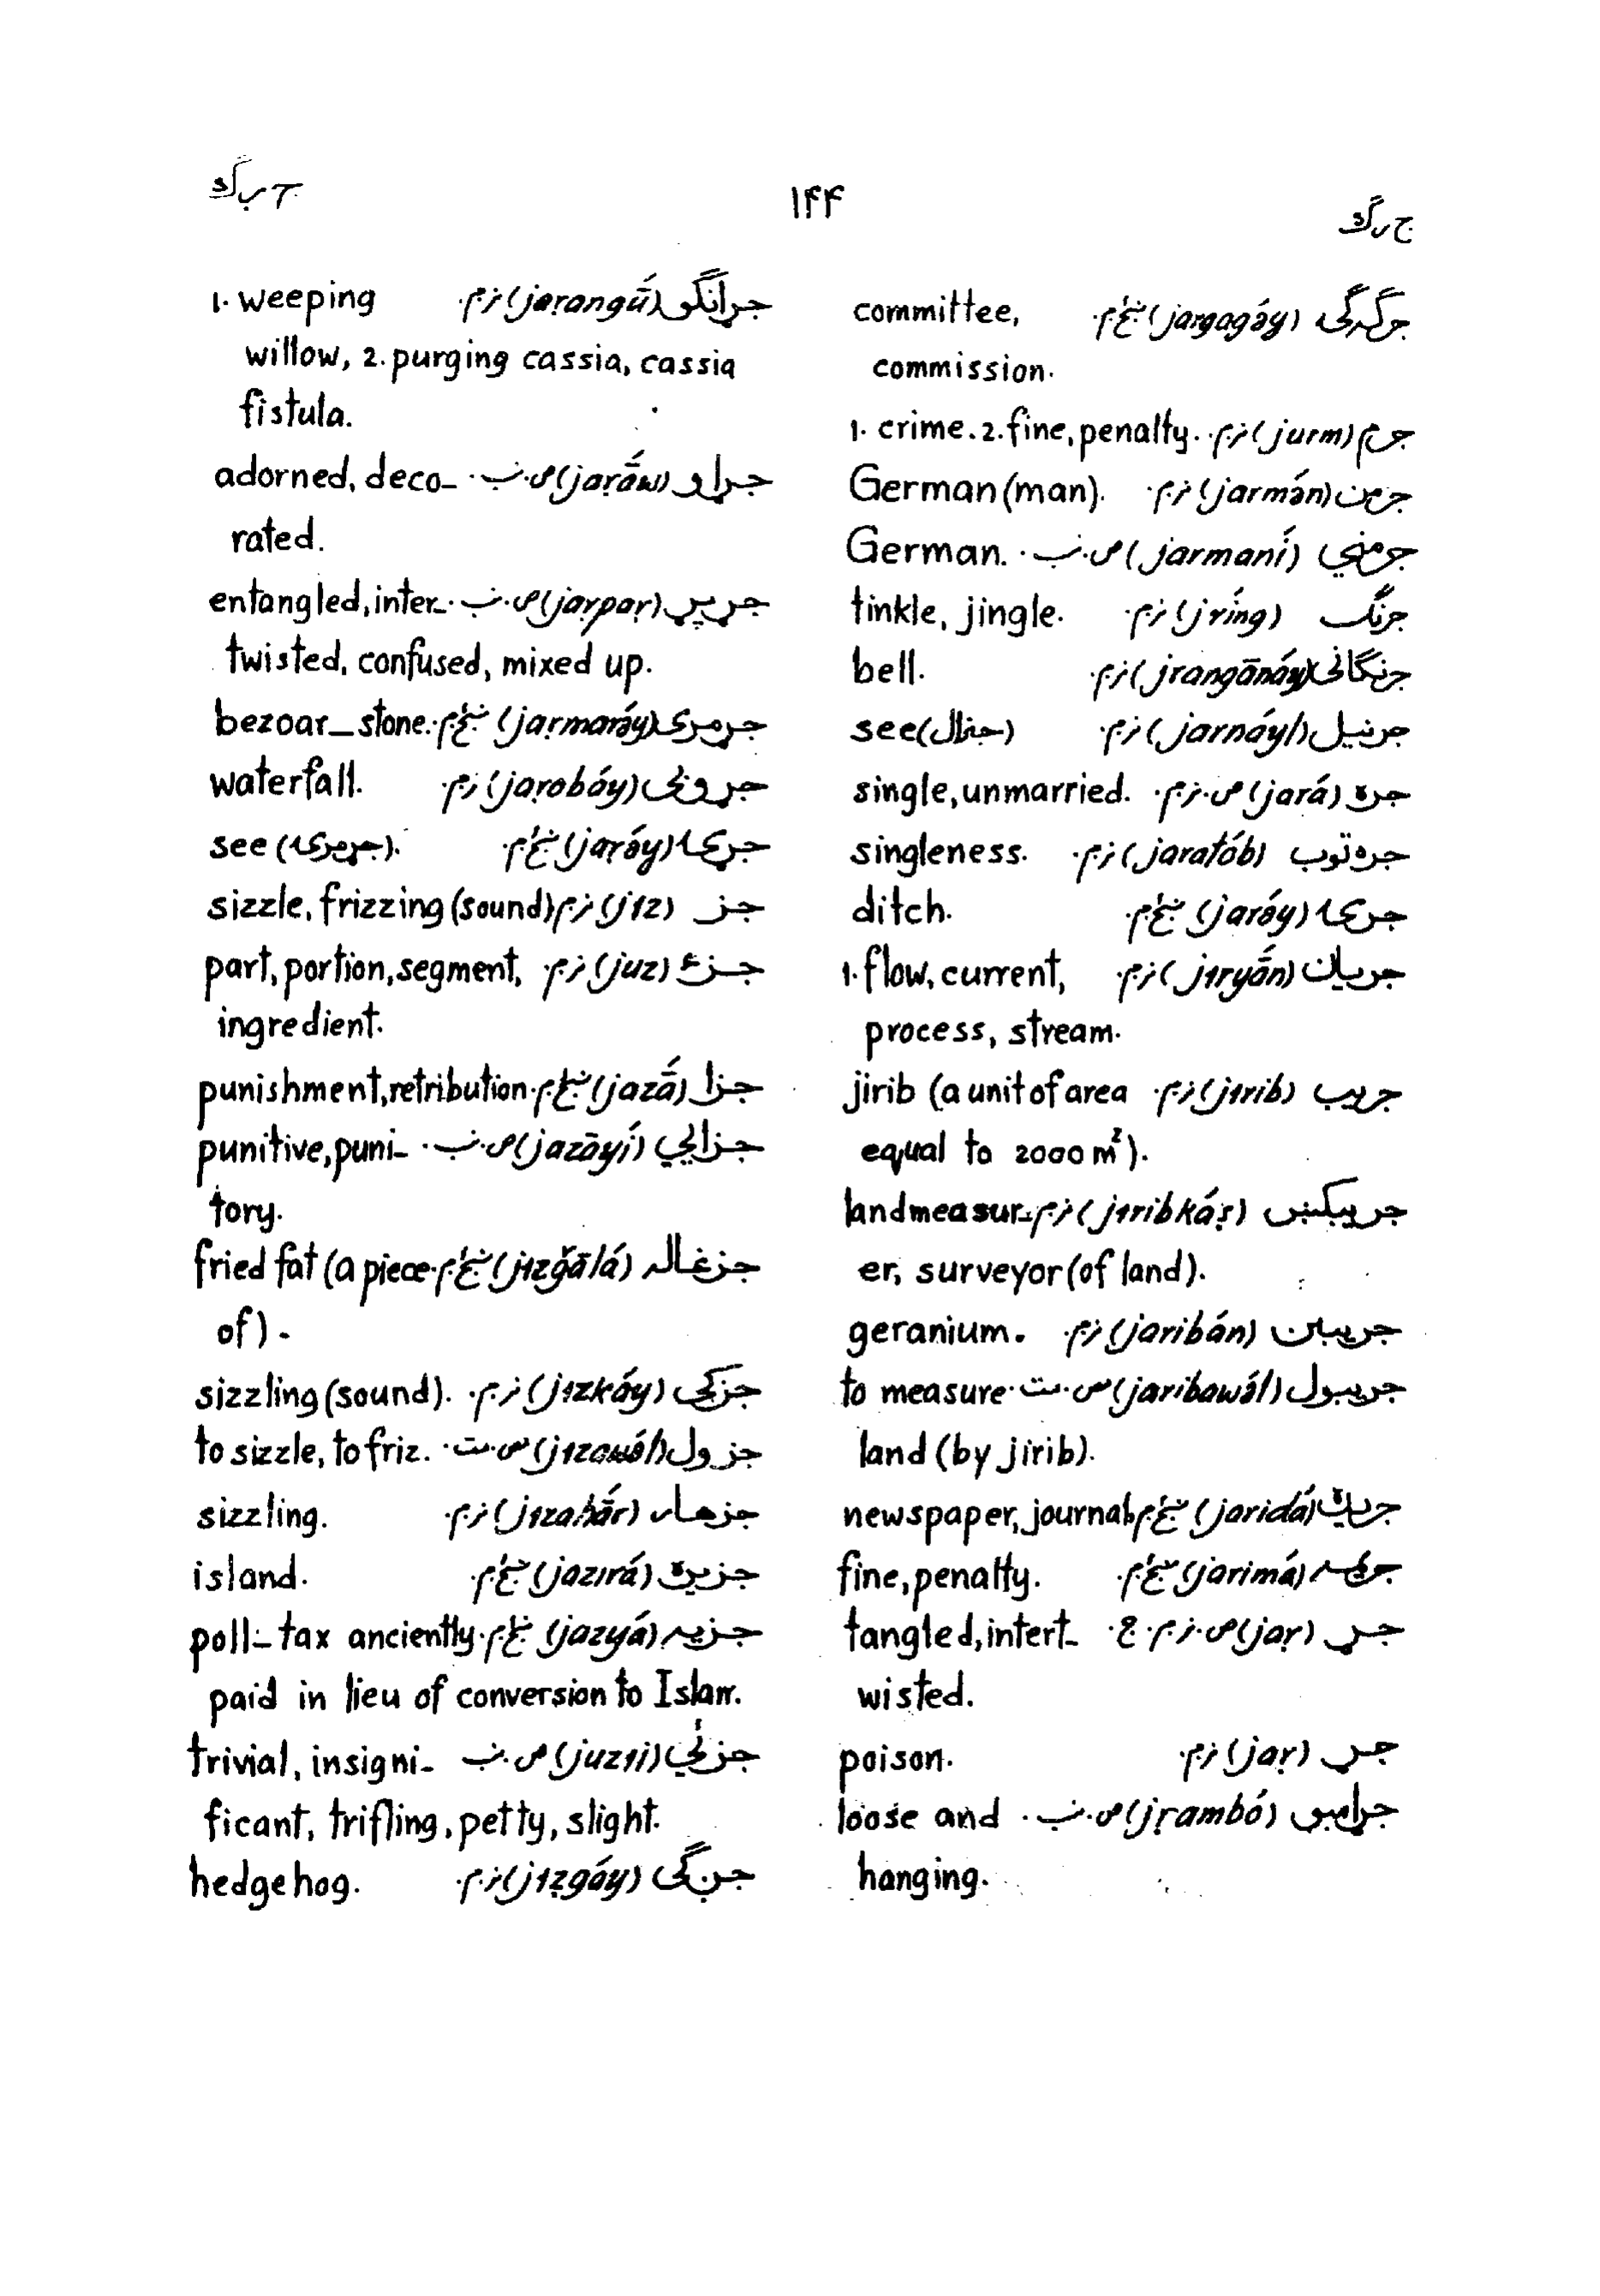 ۱۴۴
جرګه ګۍ (jargagə́y) ښځ.م. committee,
commission.
جرم (jurm) ن.م. 1. crime. 2. fine, penalty.
جرمن (jarmán) ن.م. German (man).
جرمني (jarmaní) ص.ن.ب. German.
جرنګ (jríng) ن.م. tinkle, jingle.
(jrangānáy) ن.م. bell.
جرنيل (jarnáyl) ن.م. see (جنرال)
جره (jará) ص.ن.م. single, unmarried.
جره توب (jaratób) ن.م. singleness.
جرۍ (jarə́y) ښځ.م. ditch.
جريان (jıryā́n) ن.م. 1. flow, current,
process, stream.
جريب (jırib) ن.م. jirib (a unit of area
equal to 2000 m²).
(jıribkáx̣) ن.م. landmeasur-
er, surveyor (of land).
جريبن (jaribán) ن.م. geranium.
جريبول (jaribawə́l) to measure
land (by jirib).
جريده (jaridá) ښځ.م. newspaper, journal.
جريمه (jarimá) ښځ.م. fine, penalty.
جړ (jaṛ) tangled, intert-
wisted.
جړ (jaṛ) ن.م. poison.
جړامبو (jṛambó) ص.ن.ب. loose and
hanging.
جړانګو (jaṛangū́) ن.م. 1. weeping
willow, 2. purging cassia, cassia
fistula.
جړاو (jaṛā́w) ص.ن.ب. adorned, deco-
rated.
جړپړ (jaṛpaṛ) ص.ن.ب. entangled, inter-
twisted, confused, mixed up.
جړمړۍ (jaṛmaṛə́y) ښځ.م. bezoar-stone.
جړوبی (jaṛobáy) ن.م. waterfall.
جړۍ (jaṛə́y) ښځ.م. see (جړمړۍ).
جز (jız) ن.م. sizzle, frizzing (sound)
جزء (juz) ن.م. part, portion, segment,
ingredient.
جزا (jazā́) ښځ.م. punishment, retribution.
جزايي (jazāyí) ص.ن.ب. punitive, puni-
tory.
جزغاله (jızğālá) ښځ.م. fried fat (a piece
of).
جزکی (jızkáy) ن.م. sizzling (sound).
جزول (jızawə́l) to sizzle, to friz.
جزهار (jızahā́r) ن.م. sizzling.
جزيره (jazırá) ښځ.م. island.
جزيه (jazyá) ښځ.م. poll-tax anciently
paid in lieu of conversion to Islam.
جزئي (juzıí) ص.ن.ب. trivial, insigni-
ficant, trifling, petty, slight.
جږګی (jıẓgáy) ن.م. hedgehog.